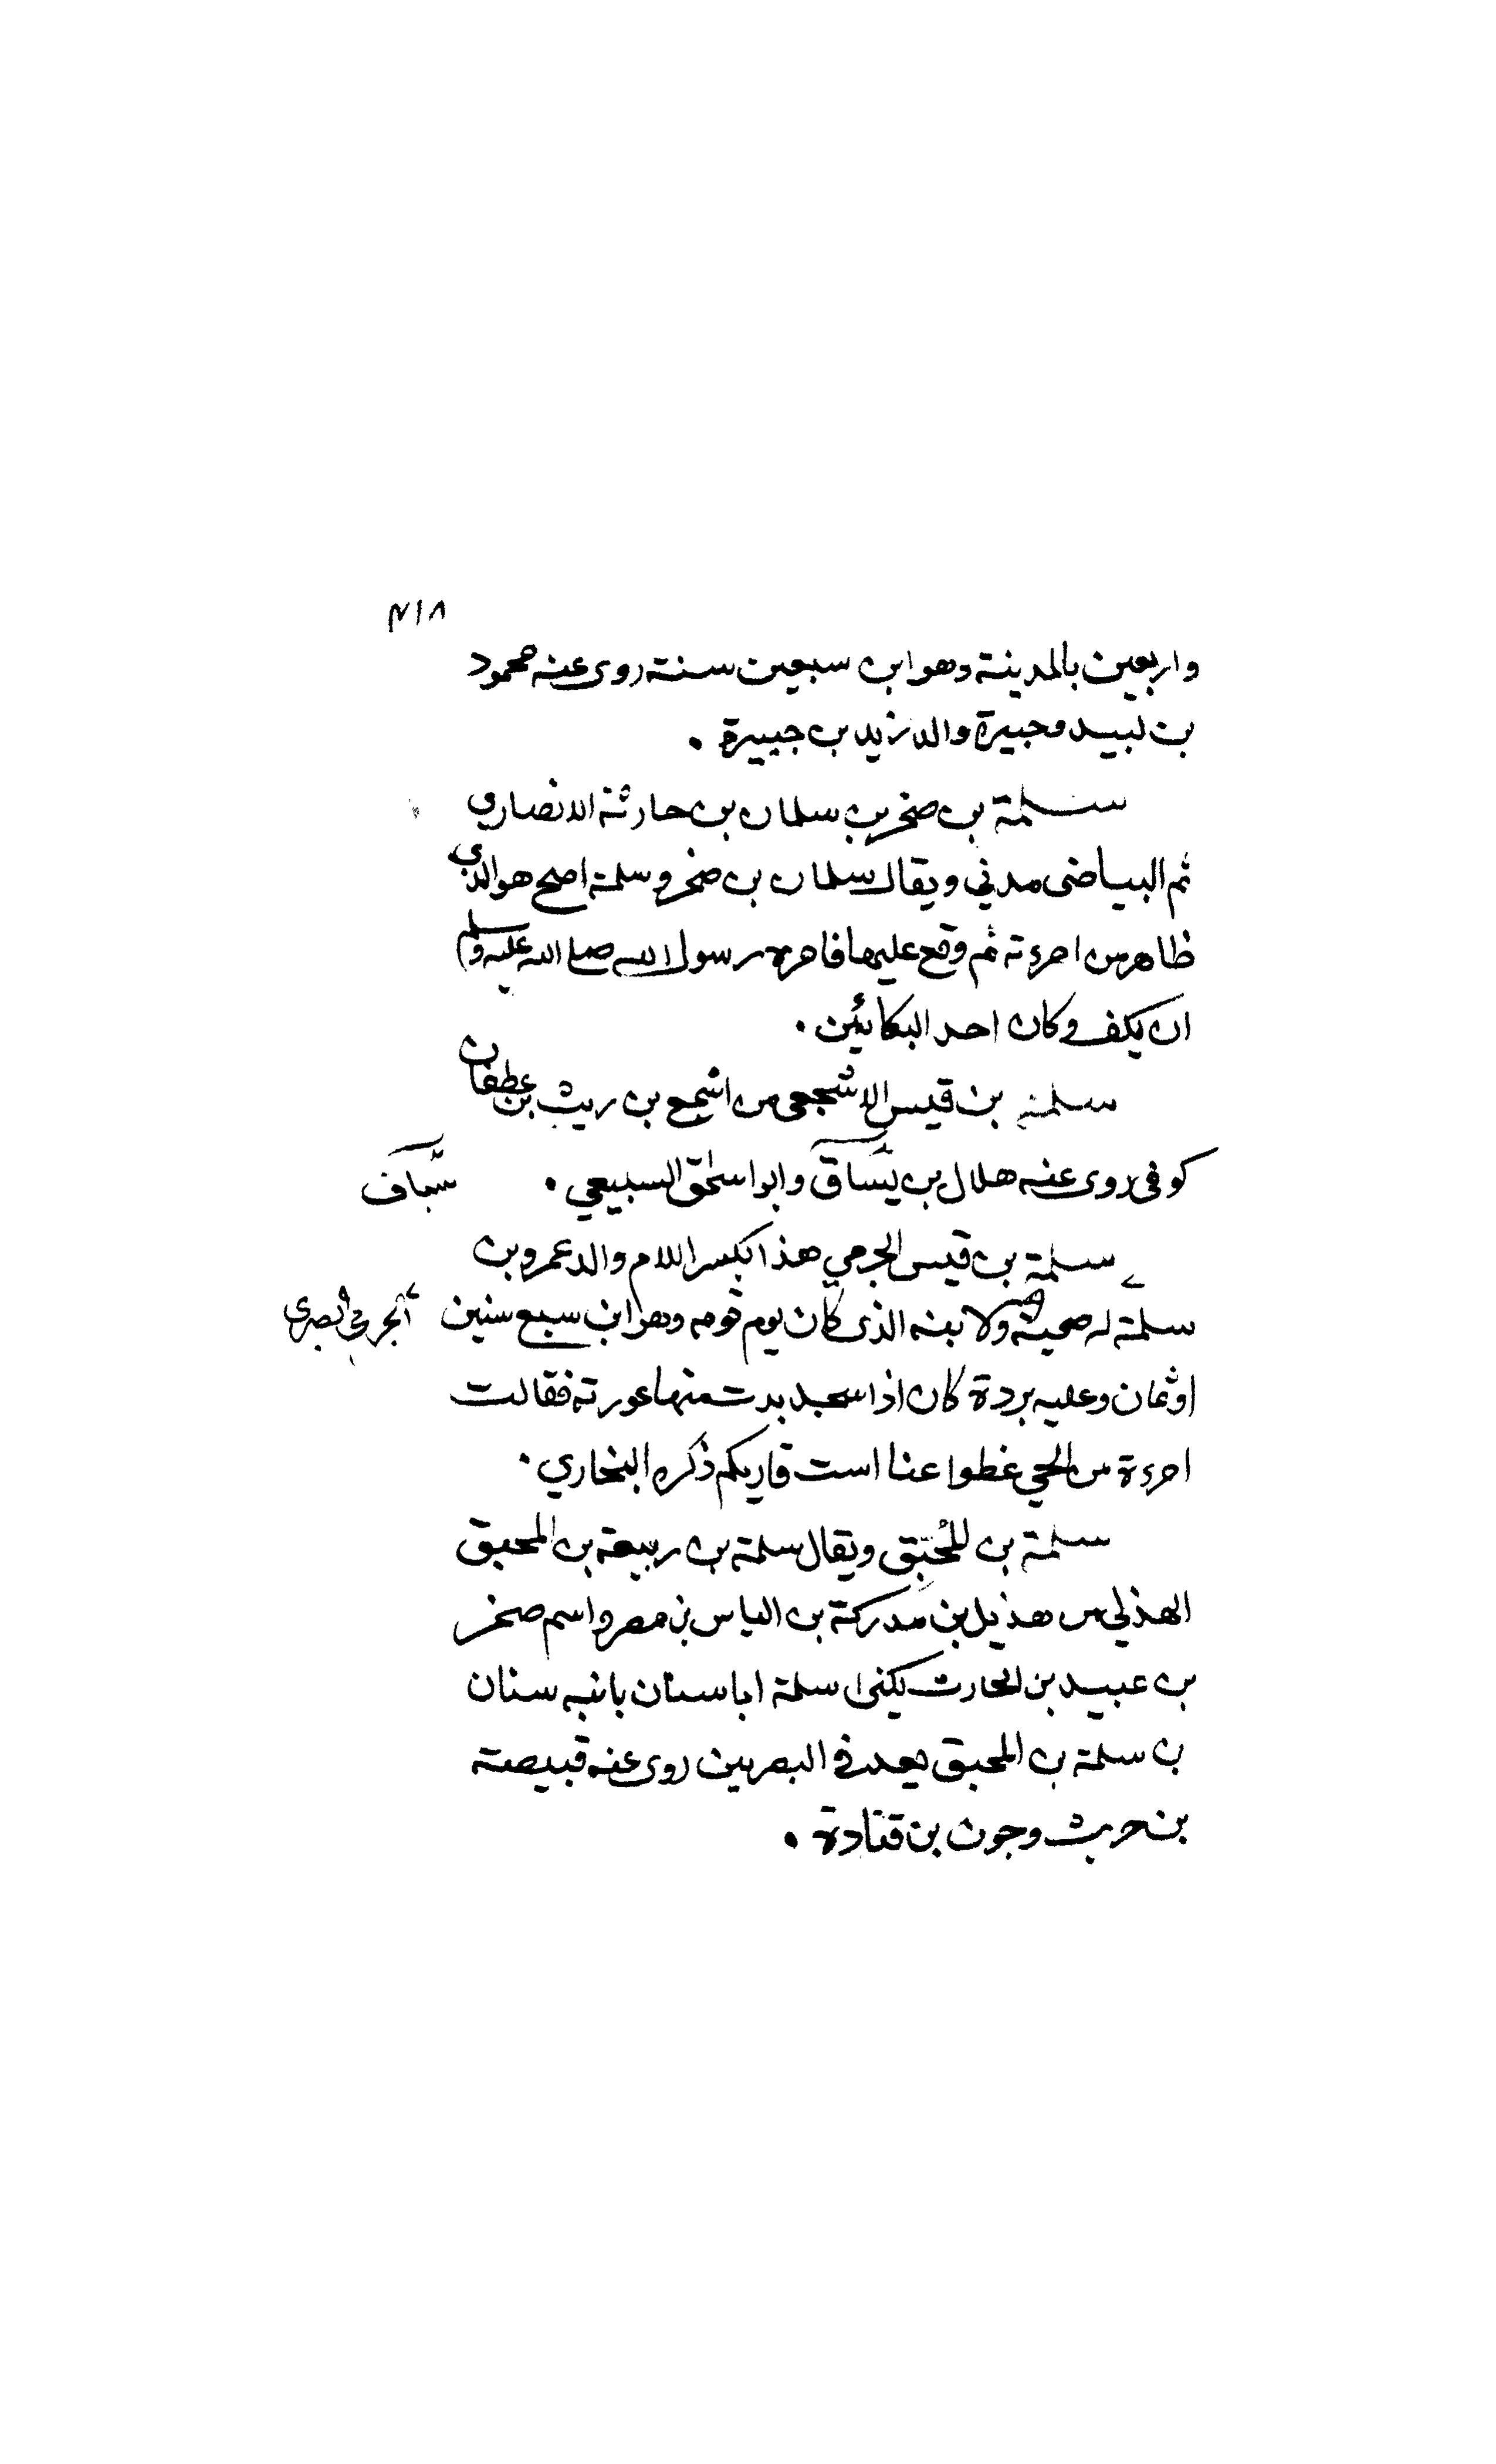 ٣١٨
واربعين بالمدينة وهو ابن سبعين سنة روى عنه محمود
بن لبيد وجبيرة والد زيد بن جبيرة .
سلمة بن صخر بن سلمان بن حارثة الانصاري
ثم البياضى مدني ويقال سلمان بن صخر وسلمة اصح هو الذي
ظاهر من امرءته ثم وقع عليها فامره رسول الله صلى الله عليه وسلم
ان يكفر وكان احد البكائين .
سلمة بن قيس الاشجعى من اشجع بن ريث بن غطفان
كوفى روى عنه هلال بن يساق وابو اسحق السبيعي .
سلمة بن قيس الجرمي هذا بكسر اللام والد عمرو بن
سلمة له صحبة ولابنه الذى كان يوم قومه وهو ابن سبع سنين
الجرمي البصرى
اوثمان وعليه بردة كان اذا سجد بدت منها عورته فقالت
امرءة من الحي غطوا عنا است قاريكم ذكره البخاري .
سلمة بن المُحَبّق ويقال سلمة بن ربيعة بن المحبق
الهذلي من هذيل بن مدركة بن الياس بن مضر واسم صخر
بن عبيد بن الحارث يكنى سلمة ابا سنان بابنه سنان
بن سلمة بن المحبق يعد في البصريين روى عنه قبيصة
بن حريث وجون بن قتادة .